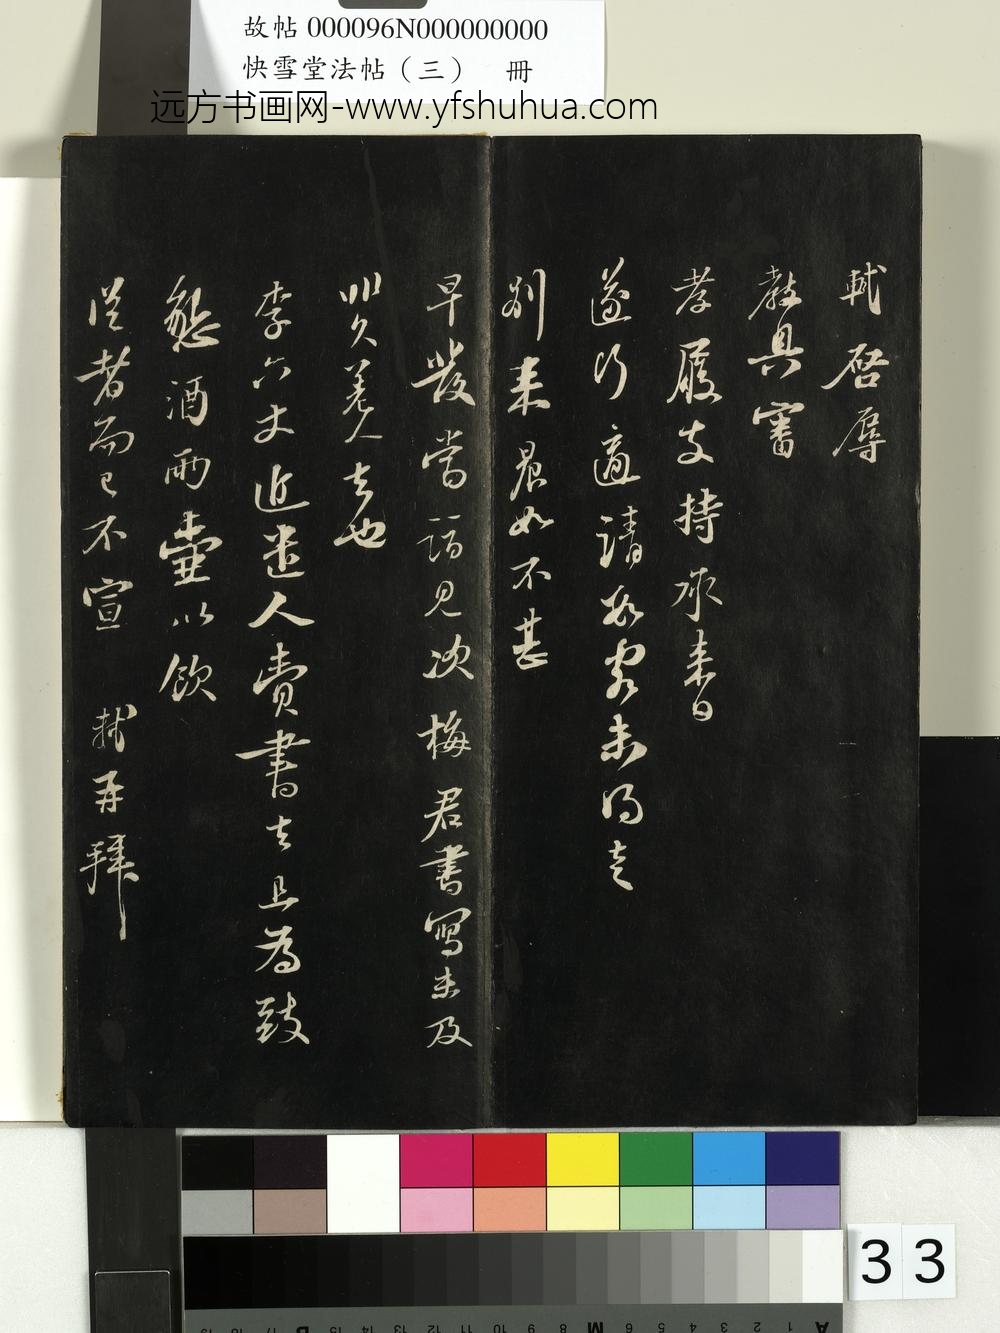 故帖 000096N000000000
快雪堂法帖（三） 冊
远方书画网-www.yfshuhua.com
軾啓辱
教具審
孝履支持承来日
遂行適請數客未得走
別来晨如不甚
早發當一詣見次梅君書寫未及
非久差人去也
李六丈近遣人賫書去且為致
懇酒兩壷以飲
從者而已不宣 軾再拜
33